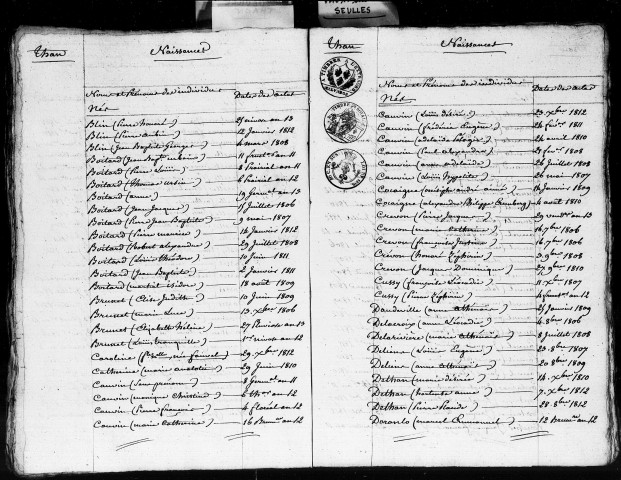 SEULLES
Than
Naissances
Noms et Prénoms des individus
Nés
Date des actes
Blin (Pierre honoré) 25 nivose an 13
Blin (Pierre aubin) 12 Janvier 1812
Blin (Jean Baptiste Georges) 4 mars 1808
Boitard (Jean Bapte aubin) 11 fruct. an 11
Boitard (Pierre Louis) Prairial an 11
Boitard (thomas ursin) 6 Prairial an 12
Boitard (anne) 19 Germ. an 13
Boitard (Jean Jacques) 15 Juillet 1806
Boitard (Pierre Jean Baptiste) 9 mai 1807
Boitard (Pierre maurice) 14 Janvier 1812
Boitard (Robert alexandre) 29 Juillet 1808
Boitard (Louis théodore) 10 Juin 1811
Boitard (Jean Baptiste) 2 Janvier 1811
Boitard (martial isidore) 18 août 1809
Brunet (Elise Judith) 10 Juin 1809
Brunet (marie Luce) 13 Xbre 1806
Brunet (Elizabeth héléne) 27 Pluviose an 13
Brunet (Louis tranquille) 1er nivose an 12
Caroline ( ) 29 Xbre 1812
Catherine (marie ) 29 Juin 1810
Cauvin ( ) 8 Germ. an 11
Cauvin (monique Christine) 6 th. an 12
Cauvin (Pierre francois) 4 floréal an 12
Cauvin (marie Catherine) 16 Brum. an 12
Than
Naissances
Noms et Prénoms des individus
Nés
Date des actes
Cauvin (Louis désiré) 23 Xbre 1812
Cauvin (frédéric Eugène) 24 fév. 1811
Cauvin (adelaïde ) 24 avril 1810
Cauvin (Paul alexandre) 23 fév. 1808
Cauvin (anne adelaïde) 26 Juillet 1808
Cauvin (Louis hyppolite) 26 mai 1807
Cocaigne ( andré aimé) 14 Janvier 1809
Cocaigne (alexandre Philippe ) 4 août 1810
Crevon (Pierre Jacques) 29 vend. an 13
Crevon (marie Catherine) 16 7bre 1806
Crevon (françoise Justine) 16 7bre 1806
Crévon (honoré Zéphirin) 3 9bre 1808
Crevon (Jacques Dominique) 27 9bre 1810
Cussy (françoise Léocadie) 11 Xbre 1807
Cussy (Pierre Zéphirin) 4 fruct. an 12
Daudeville (anne athénaïs) 25 Janvier 1809
Delacroix (anne Léocadie) 4 8bre 1806
Delarivière (marie athénaïs) 8 Juillet 1808
Deline (Louis Eugène) 23 8bre 1807
Deline (anne athénaïs) 20 8bre 1809
Dethan (marie désirée) 14 Xbre 1810
Dethan (hortense anne) 7 Xbre 1812
Dethan (Pierre ) 28 8bre 1812
Doranlo (marcel Emmanuel) 12 Brum. an 12